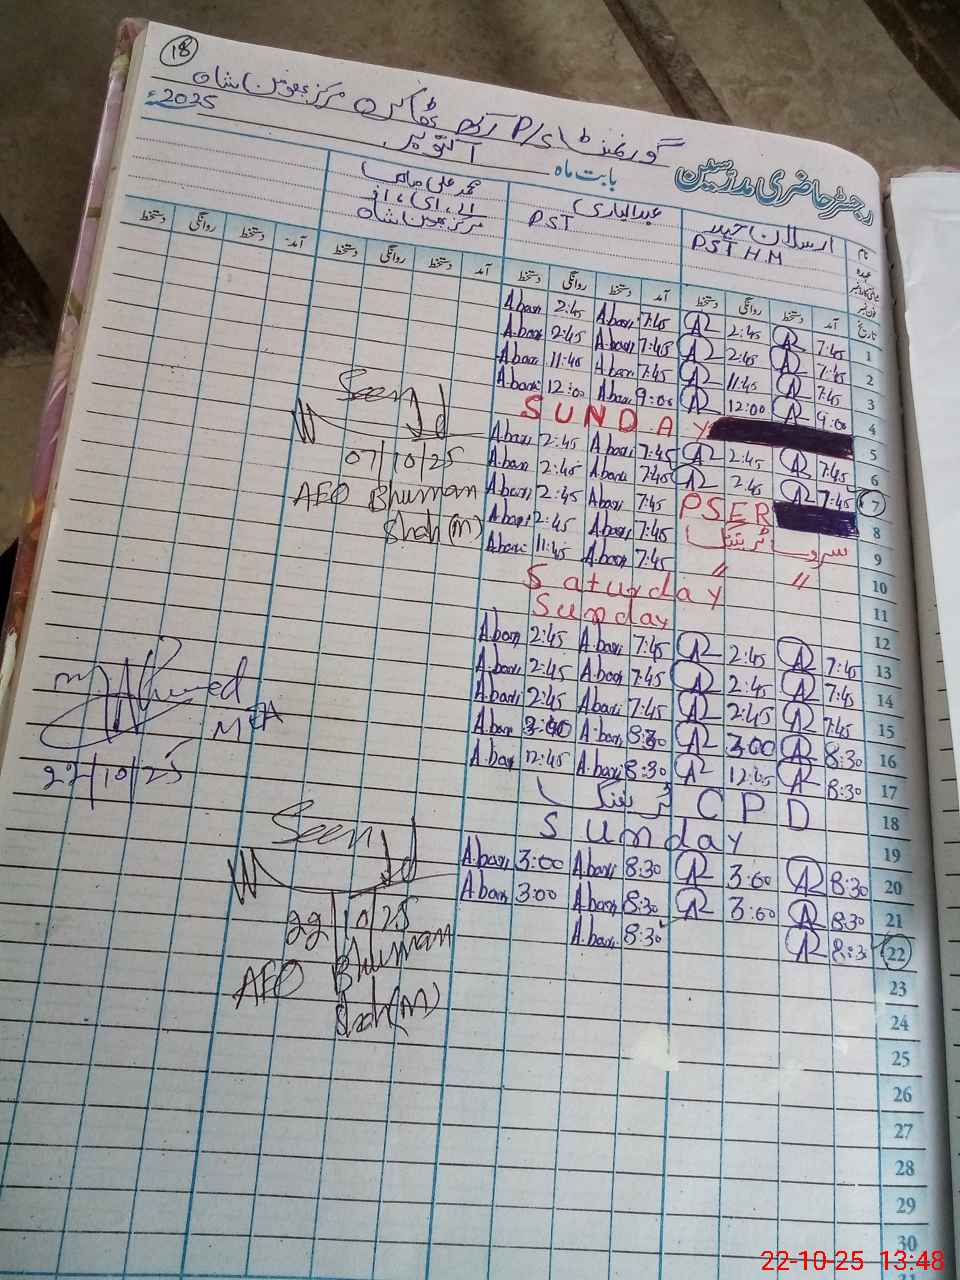 18
گورنمنٹ P/S رکھ ٹھاکرہ مرکز بھومن شاہ
رجسٹر حاضری مدرسین بابت ماہ اکتوبر 2025ء
نام ارسلان حیدر عبدالباری محمد علی صاحب
عہدہ PST H.M PST اے، ای، او
مرکز بھومن شاہ
تاریخ آمد دستخط روانگی دستخط آمد دستخط روانگی دستخط آمد دستخط روانگی دستخط آمد دستخط روانگی دستخط
1 7:45 2:45 A.bari 7:45 A.bari 2:45
2 7:45 2:45 A.bari 7:45 A.bari 2:45
3 7:45 11:45 A.bari 7:45 A.bari 11:45
4 9:00 12:00 A.bari 9:00 A.bari 12:00
5 SUNDAY
6 7:45 2:45 A.bari 7:45 A.bari 2:45
7 7:45 2:45 A.bari 7:45 A.bari 2:45
8 PSER A.bari 7:45 A.bari 2:45
9 سروے ٹریننگ A.bari 7:45 A.bari 2:45
10 〃 〃 A.bari 7:45 A.bari 11:45
11 Saturday
12 Sunday
13 7:45 2:45 A.bari 7:45 A.bari 2:45
14 7:45 2:45 A.bari 7:45 A.bari 2:45
15 7:45 2:45 A.bari 7:45 A.bari 2:45
16 8:30 3:00 A.bari 8:30 A.bari 3:00
17 8:30 12:45 A.bari 8:30 A.bari 12:45
18 CPD ٹریننگ
19 Sunday
20 8:30 3:00 A.bari 8:30 A.bari 3:00
21 8:30 3:00 A.bari 8:30 A.bari 3:00
22 8:30 A.bari 8:30
23
24
25
26
27
28
29
30
Seen
07/10/25
AEO Bhuman
Shah (M)
M Ahmed
MEA
22/10/25
Seen
22/10/25
AEO Bhuman
Shah (M)
22-10-25 13:48